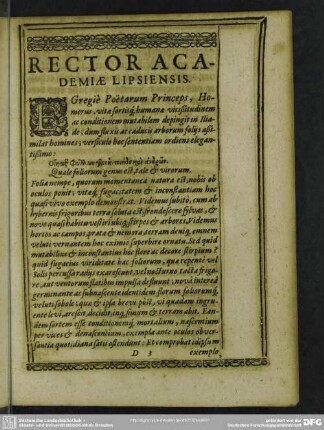 RECTOR ACA-
DEMIÆ LIPSIENSIS.
EGregiè Poëtarum Princeps, Ho-
merus, vitæ sortisq́; humanæ vicissitudinem
ac conditionem mutabilem depingit in Ilia-
de; dum fluxis ac caducis arborum folijs assi-
milat homines; versiculo hoc sententiam ordiens elegan-
tissimo:
Quale foliorum genus est, tale & virorum.
Folia nempe, quorum momentanea natura est, nobis ob
oculos ponit; vitæq́; fugacitatem & inconstantiam hoc
quasi vivo exemplo demonstrat. Videmus subitò, cum ab
hybernis frigoribus terra soluta est, frondescere sylvas, &
novo quasi habitu vestiri indies stirpes & arbores. Videmus
hortos ac campos, prata & nemora, terram deniq́; omnem
veluti vernantem hoc eximio superbire ornatu. Sed quid
mutabilius & inconstantius hoc flore ac decore stirpium?
quid fugacius viriditate hac foliorum, quæ repentè vel
Solis percussa radijs exarescunt, vel nocturno tacta frigo-
re, aut ventorum flatibus impulsa defluunt; nova interea
germinante ac subnascente identidem
veluti sobole: quæ & ipsa brevi pòst, vi quadam ingru-
ente levi, arescit, decidit, inq́; fimum & terram abit. Ean-
dem sortem esse conditionemq́; mortalium, nascentium
per vices & denascentium, exempla ante oculos obver-
santia quotidiana satis ostendunt: Et comprobat idipsum
D 3 exemplo